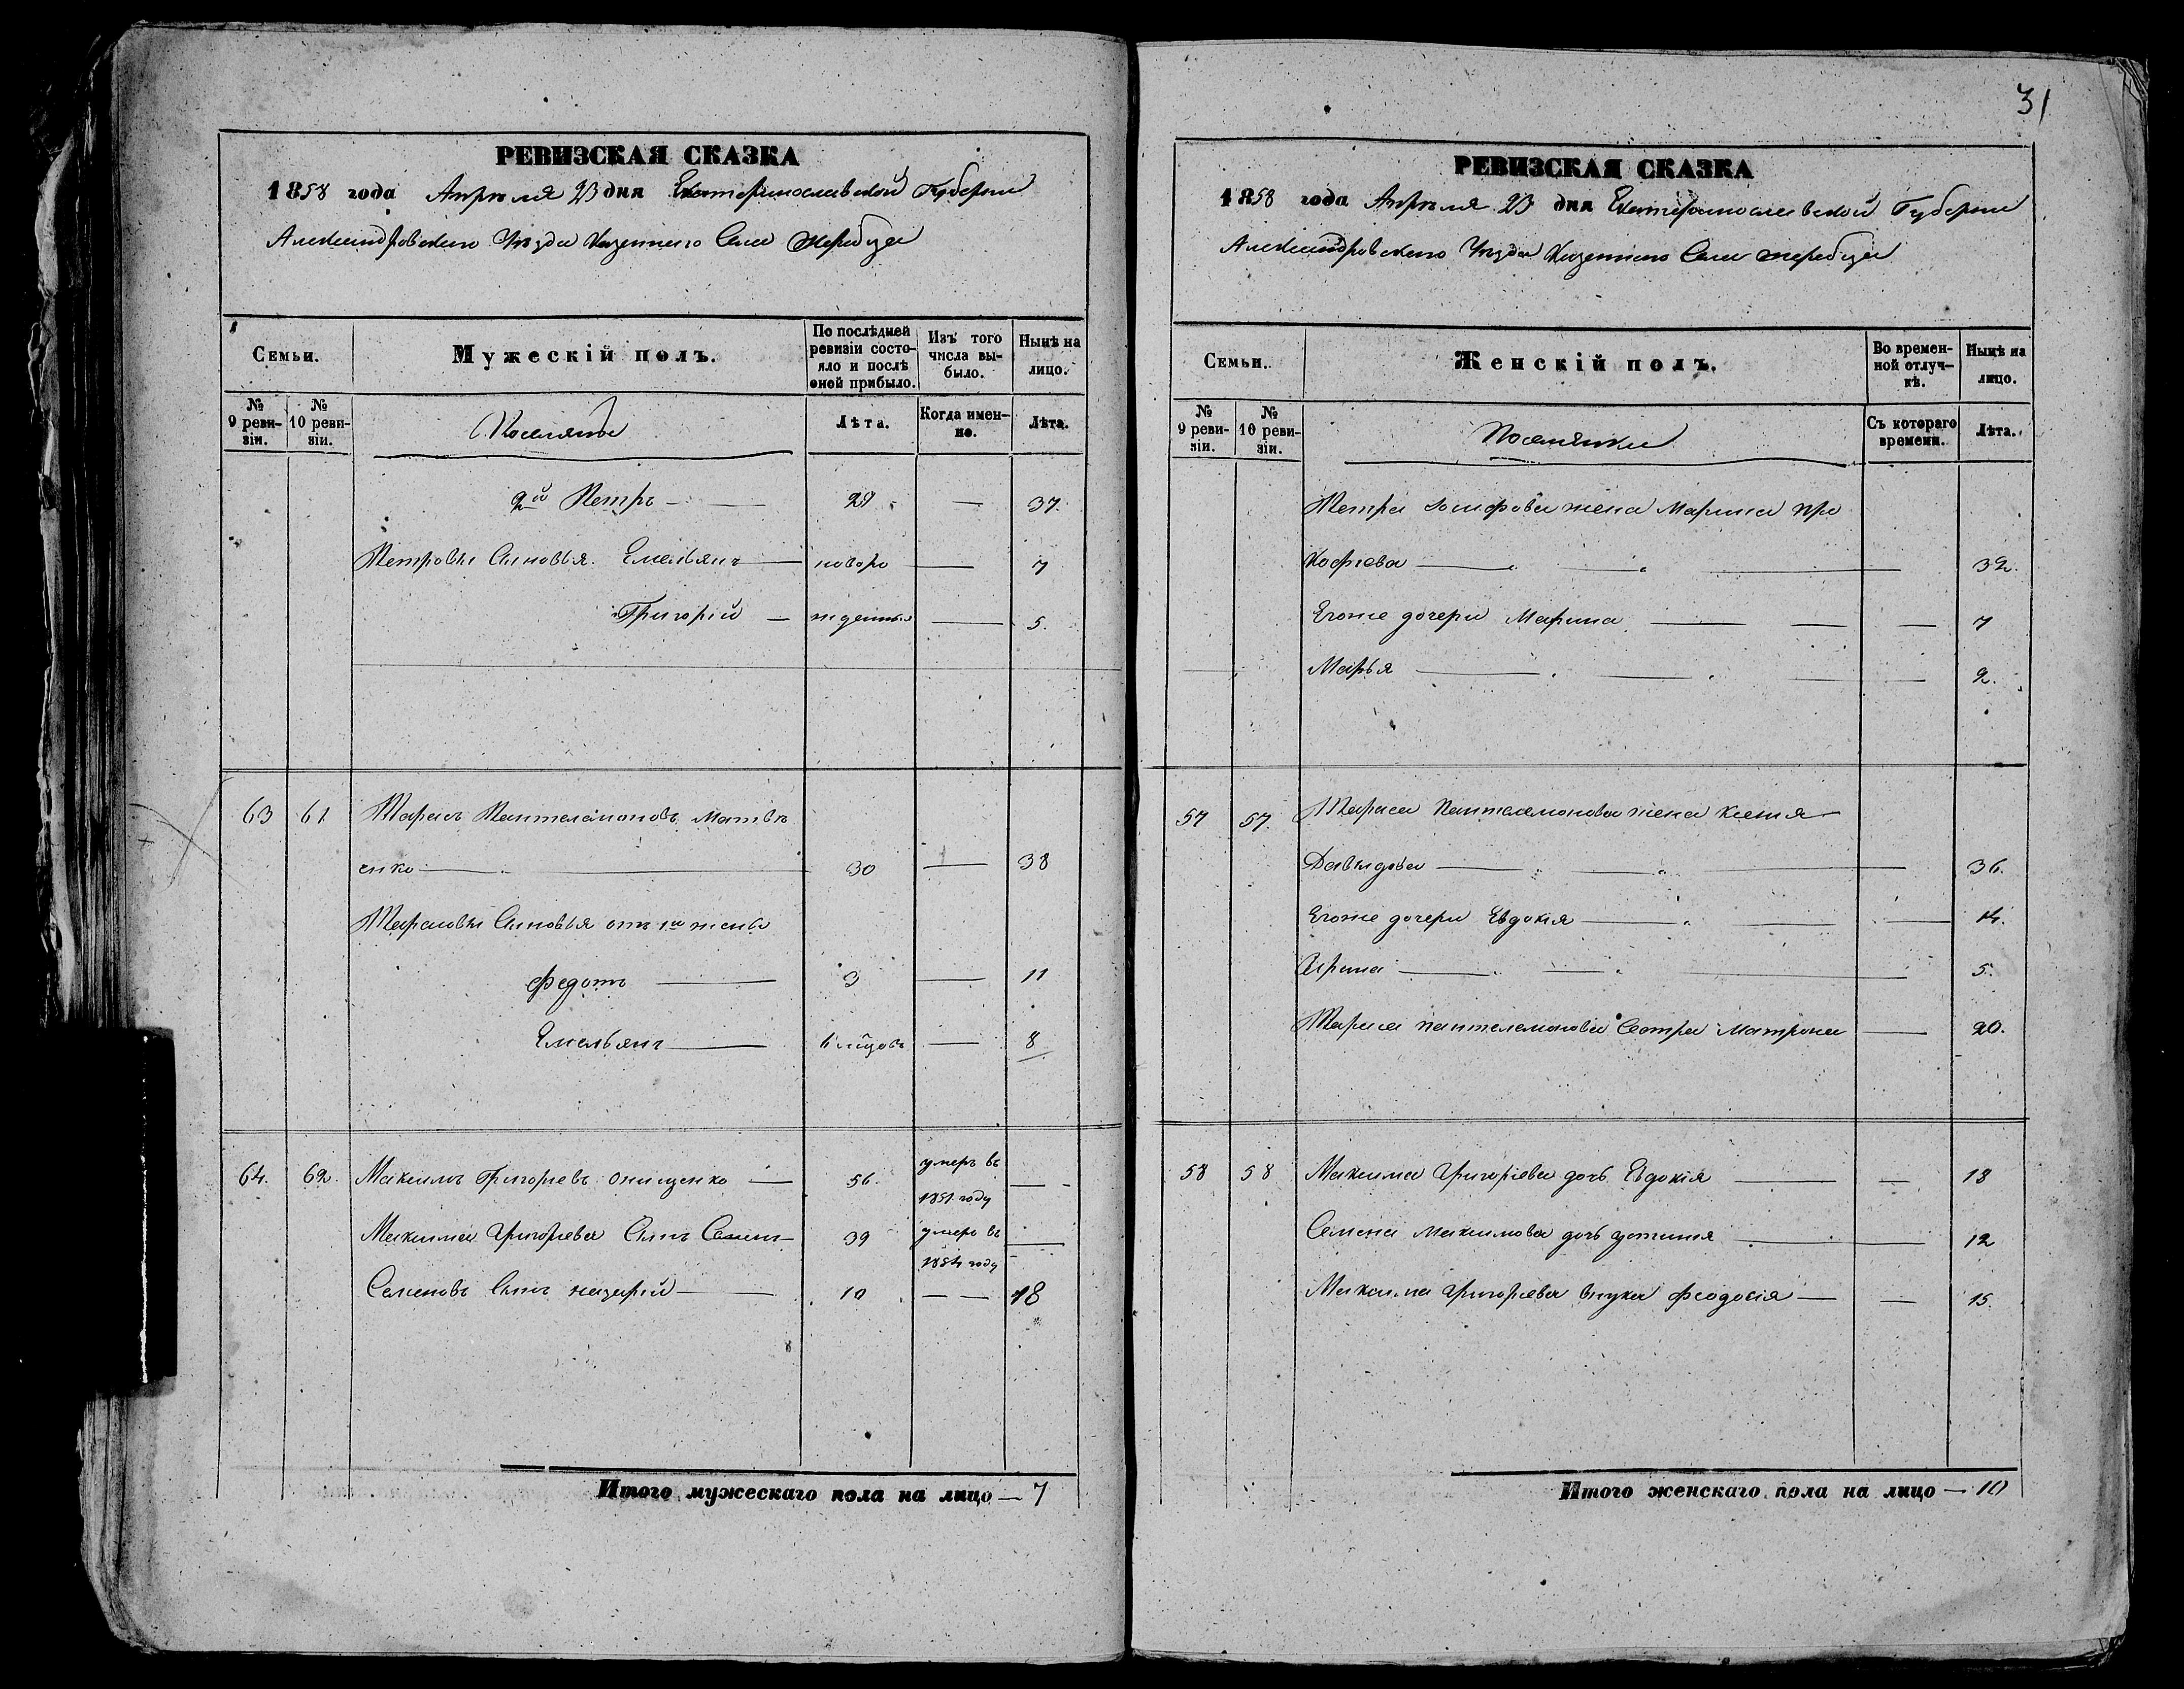 31
РЕВИЗСКАЯ СКАЗКА
1858 года Апрѣля 23 дня Екатеринославской Губерніи
Александровскаго Уѣзда Казеннаго Села Жеребца
Семьи.
Мужескій полъ.
По послѣдней ревизіи состояло и послѣ оной прибыло.
Изъ того числа выбыло.
Нынѣ на лицо.
№ 9 ревизіи.
№ 10 ревизіи.
Поселяне
Лѣта.
Когда именно.
Лѣта.
2й Петръ — 29 — 37.
Петровы Сыновья. Емельянъ — новоро — 7
Григорій — жденные — 5.
63 61 Тарасъ Пантелеймоновъ Матвѣ
енко — 30 — 38
Тарасовы Сыновья отъ 1й жены
Федотъ — 3 — 11
Емельянъ — — 8
64. 62. Максимъ Григорьевъ Онищенко — 56. умеръ въ 1851 году —
Максима Григорьева Сынъ Семенъ — 39 умеръ въ 1854 году —
Семеновъ Сынъ Назарій — 10 — — 18
Итого мужескаго пола на лицо — 7
РЕВИЗСКАЯ СКАЗКА
1858 года Апрѣля 23 дня Екатеринославской Губерніи
Александровскаго Уѣзда Казеннаго Села Жеребца
Семьи.
Женскій полъ.
Во временной отлучкѣ.
Нынѣ на лицо.
№ 9 ревизіи.
№ 10 ревизіи.
Поселянки
Съ котораго времени.
Лѣта.
Петра Іосифова жена Марина Про
кофіева — 32.
Егоже дочери Марина — — — 7
Марья — — — 2.
57 57. Тараса Пантелемонова жена Ксенія —
Давыдова — 36.
Егоже дочери Евдокія — — 14.
Ирина — — 5.
Тараса Пантелемонова Сестра Матрона — 20.
58 58 Максима Григорьева дочь Евдокія — — 18
Семена Максимова дочь Устинія — — 12
Максима Григорьева внука Феодосія — — 15.
Итого женскаго пола на лицо — 10